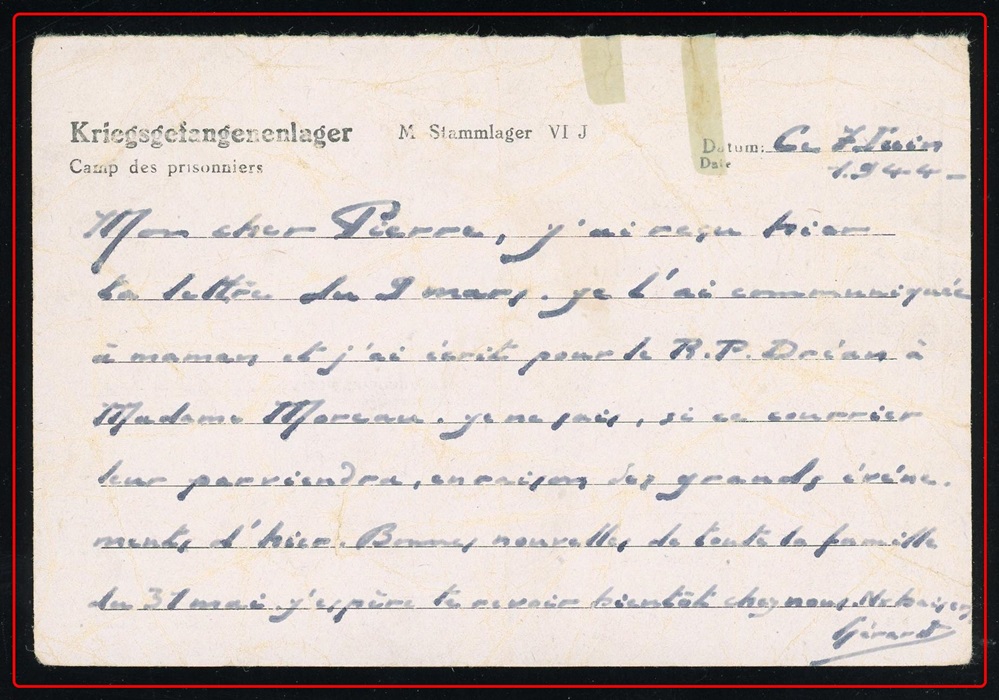 Kriegsgefangenenlager M Stammlager VI J
Camp des prisonniers
Datum: Ce 7 Juin
Date 1944-
Mon cher Pierre, j'ai reçu hier
ta lettre du 9 mars. je l'ai communiquée
à maman et j'ai écrit pour le R.P. Dréan à
Madame Moreau. je ne sais, si ce courrier
leur parviendra, en raison des grands évène-
ments d'hier. Bonnes nouvelles de toute la famille
du 31 mai j'espère te revoir bientôt chez nous. baisers
Gérard